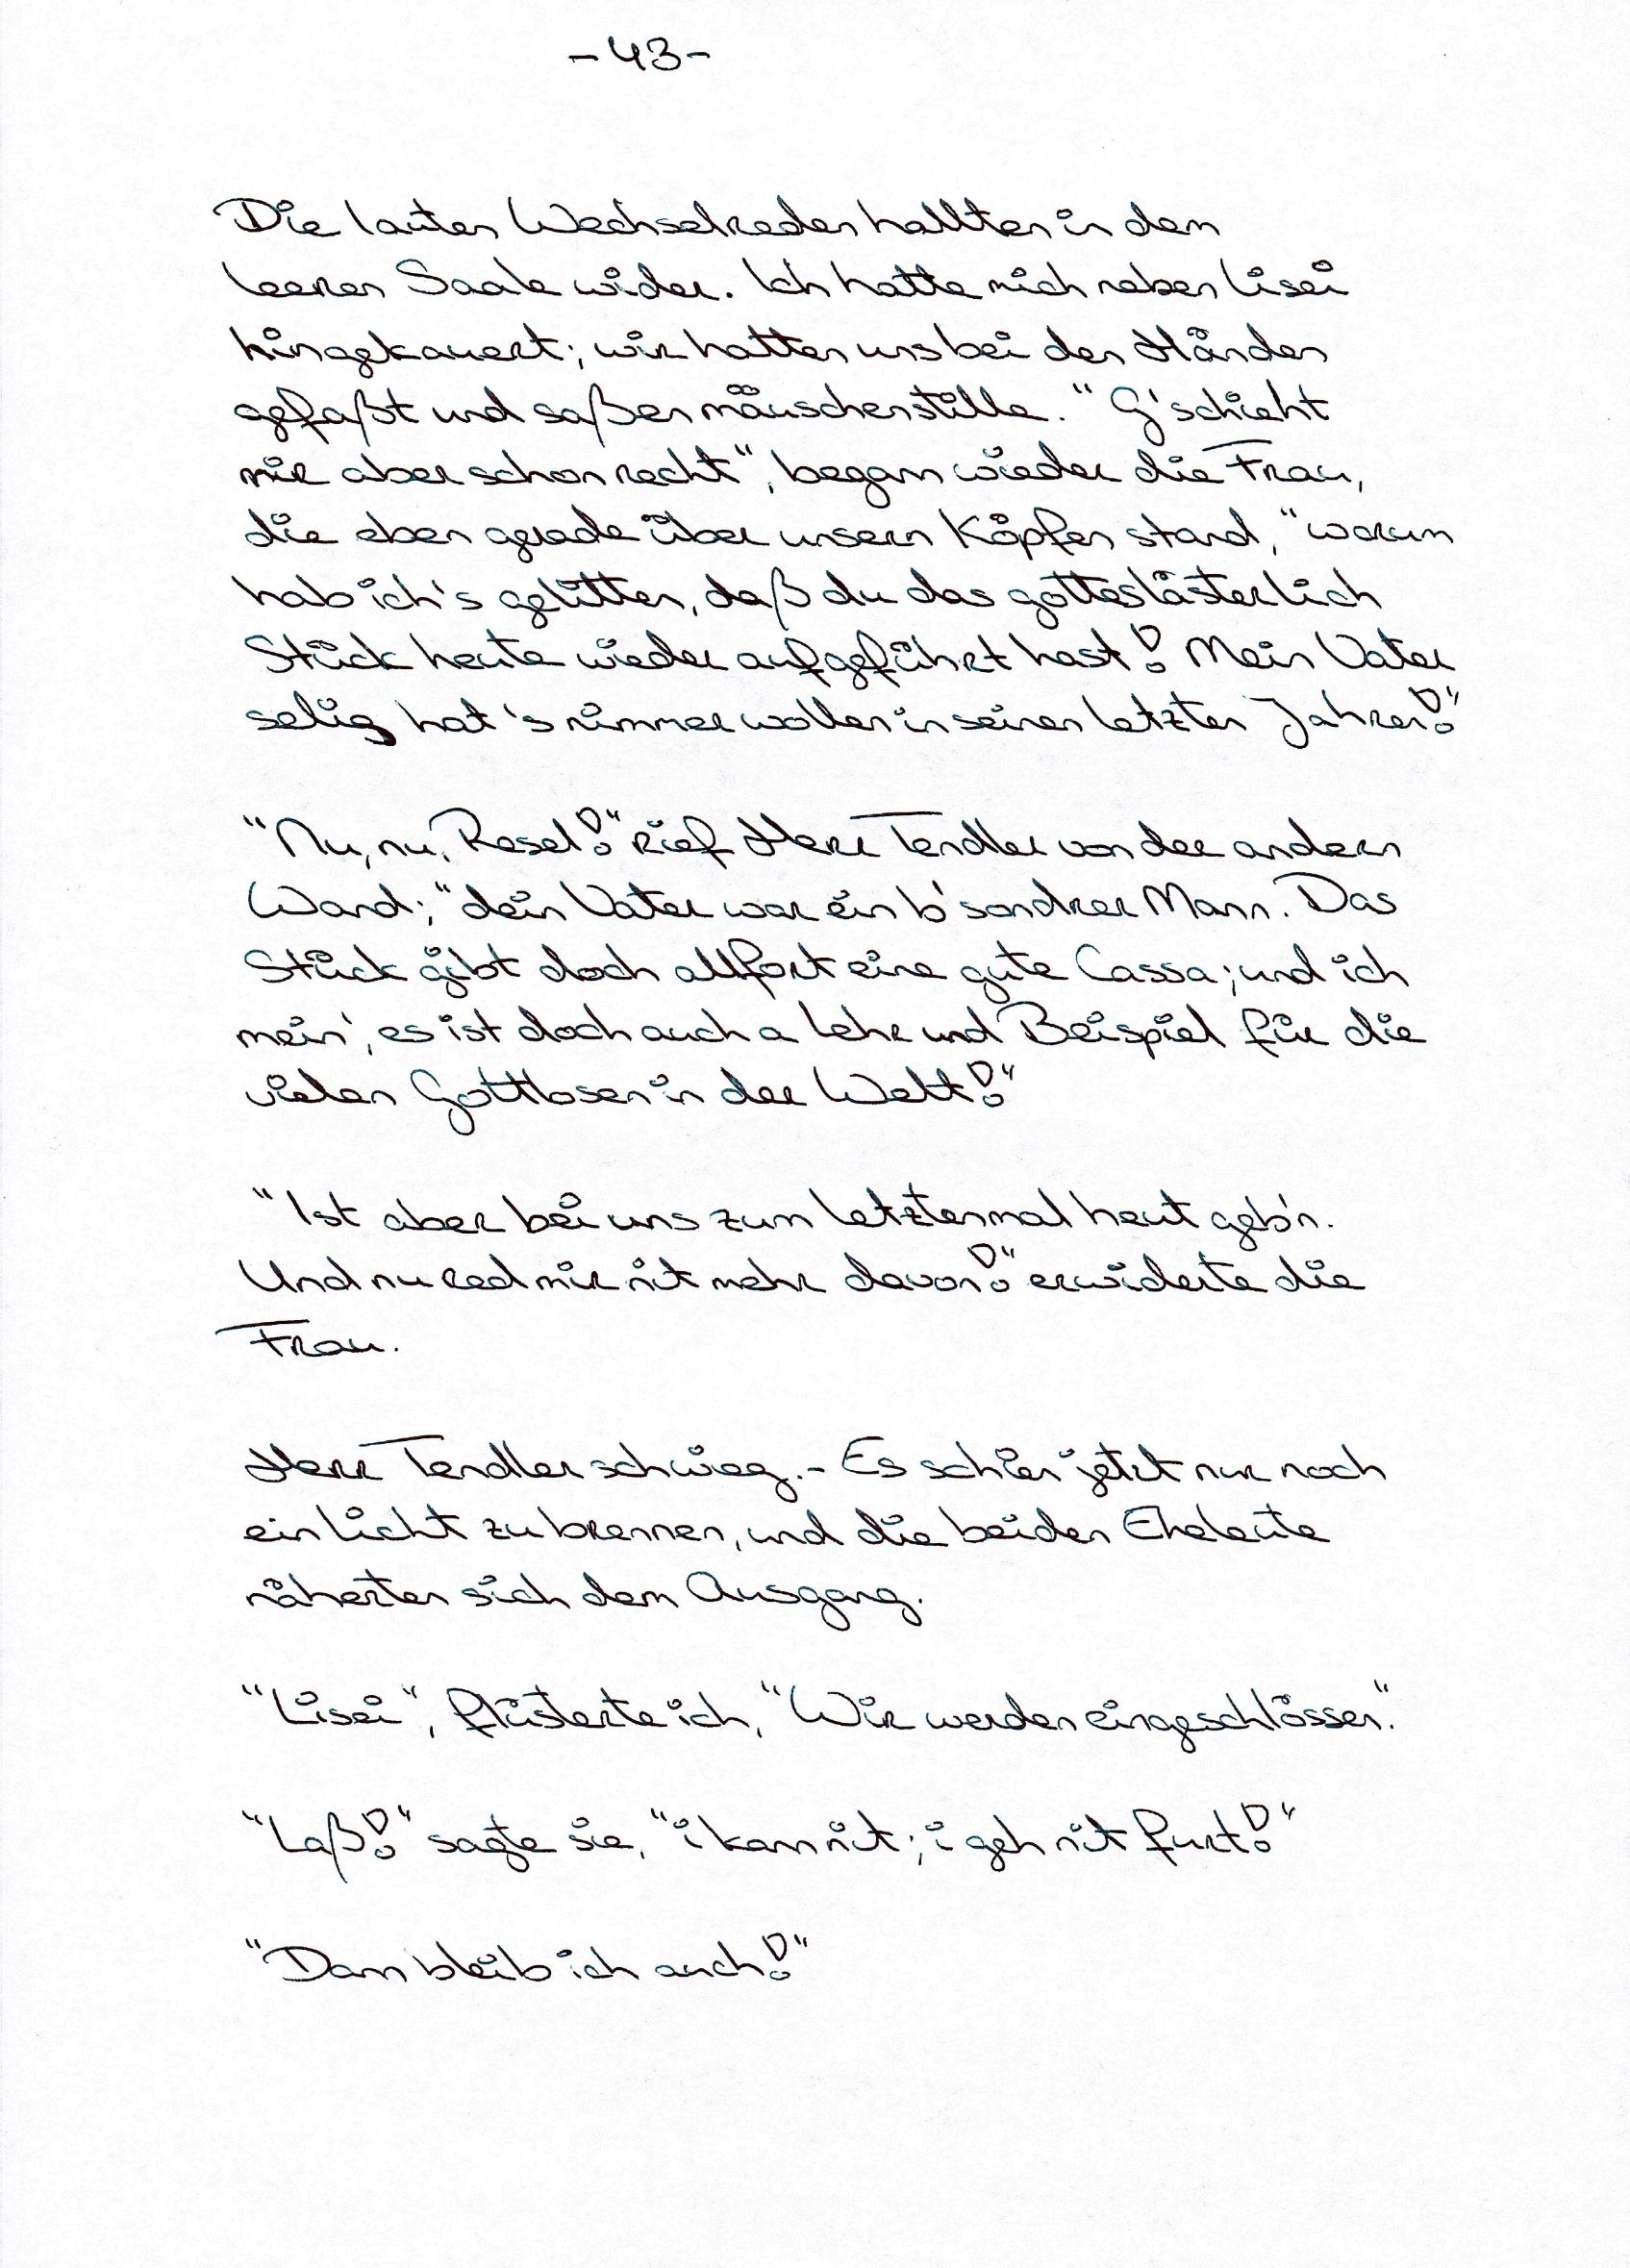 - 43 -
Die lauten Wechselreden hallten in dem
leeren Saale wider. Ich hatte mich neben Lisei
hingekauert; wir hatten uns bei den Händen
gefaßt und saßen mäuschenstille. "G'schieht
mir aber schon recht", begann wieder die Frau,
die eben gerade über unsern Köpfen stand, "warum
hab ich's gelitten, daß du das gotteslästerlich
Stück heute wieder aufgeführt hast! Mein Vater
selig hat's nimmer wollen in seinen letzten Jahren!"
"Nu, nu, Resel!" rief Herr Tendler von der andern
Wand; "dein Vater war ein b'sondrer Mann. Das
Stück gibt doch allfort eine gute Cassa; und ich
mein', es ist doch auch a Lehr und Beispiel für die
vielen Gottlosen in der Welt!"
"Ist aber bei uns zum letztenmal heut geb'n.
Und nu red mir nit mehr davon!" erwiderte die
Frau.
Herr Tendler schwieg. - Es schien jetzt nur noch
ein Licht zu brennen, und die beiden Eheleute
näherten sich dem Ausgang.
"Lisei", flüsterte ich, "Wir werden eingeschlossen."
"Laß!" sagte sie, "i kann nit; i geh nit furt!"
"Dann bleib ich auch!"